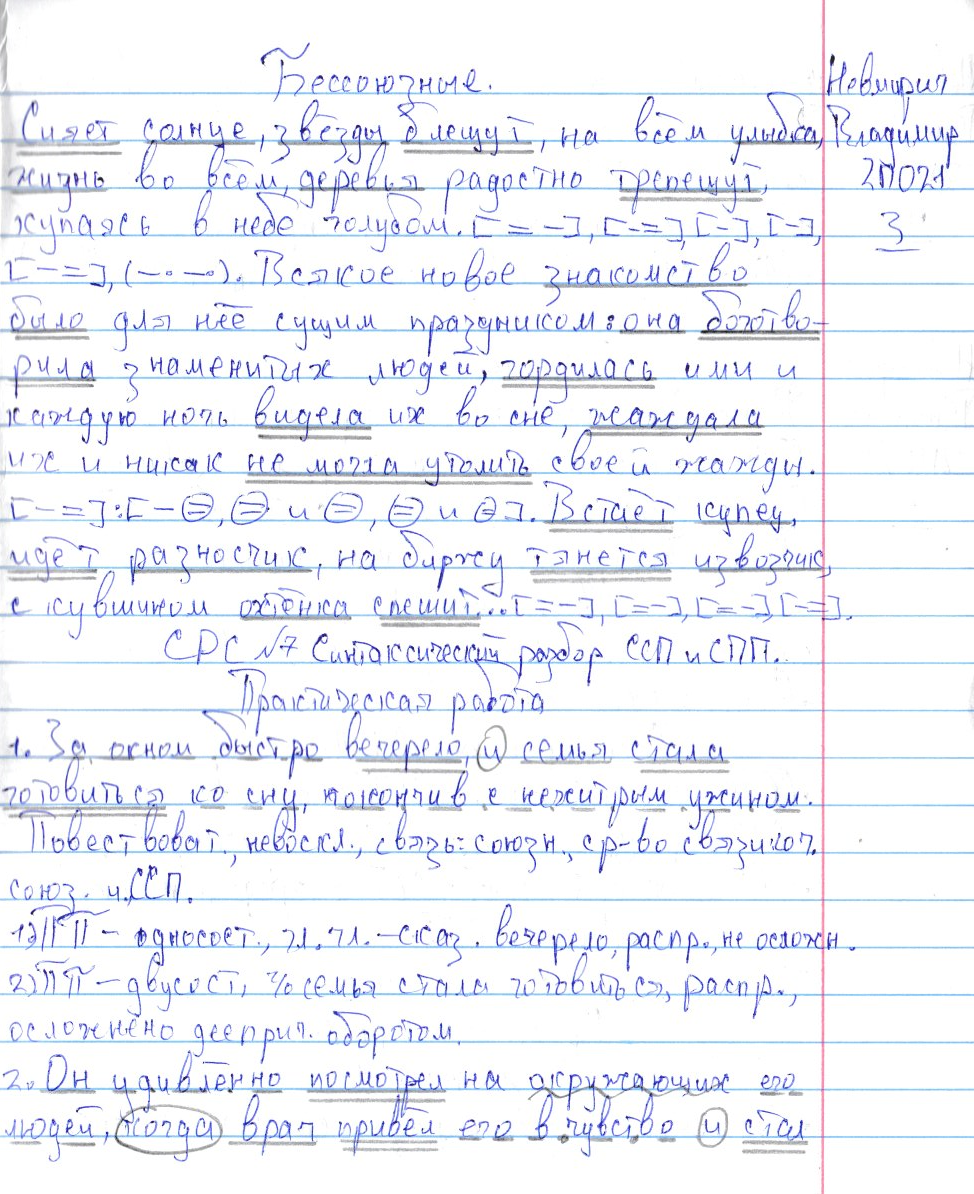 Бессоюзные.
Невмирич
Сияет солнце, звёзды блещут, на всём улыбка,
Владимир
жизнь во всём, деревья радостно трепещут,
2П021
купаясь в небе голубом. [= -], [- =], [-], [-],
3
[- =], (-·-·). Всякое новое знакомство
было для неё сущим праздником: она боготво-
рила знаменитых людей, гордилась ими и
каждую ночь видела их во сне, жаждала
их и никак не могла утолить своей жажды.
[- =]:[- ⊜, ⊜ и ⊜, ⊜ и ⊜]. Встаёт купец,
идёт разносчик, на биржу тянется извозчик,
с кувшином охтенка спешит... [= -], [= -], [= -] [- =].
СРС №7 Синтаксический разбор ССП и СПП.
Практическая работа
1. За окном быстро вечерело, и семья стала
готовиться ко сну, покончив с нехитрым ужином.
Повествоват., невоскл., связь: союзн., ср-во связи: соч.
союз. и. ССП.
1) ПП - односост., гл. гл. - сказ. вечерело, распр., не осложн.
2) ПП - двусост, г/о семья стала готовиться, распр.,
осложнено дееприч. оборотом.
2. Он удивлённо посмотрел на окружающих его
людей, когда врач привёл его в чувство и стал